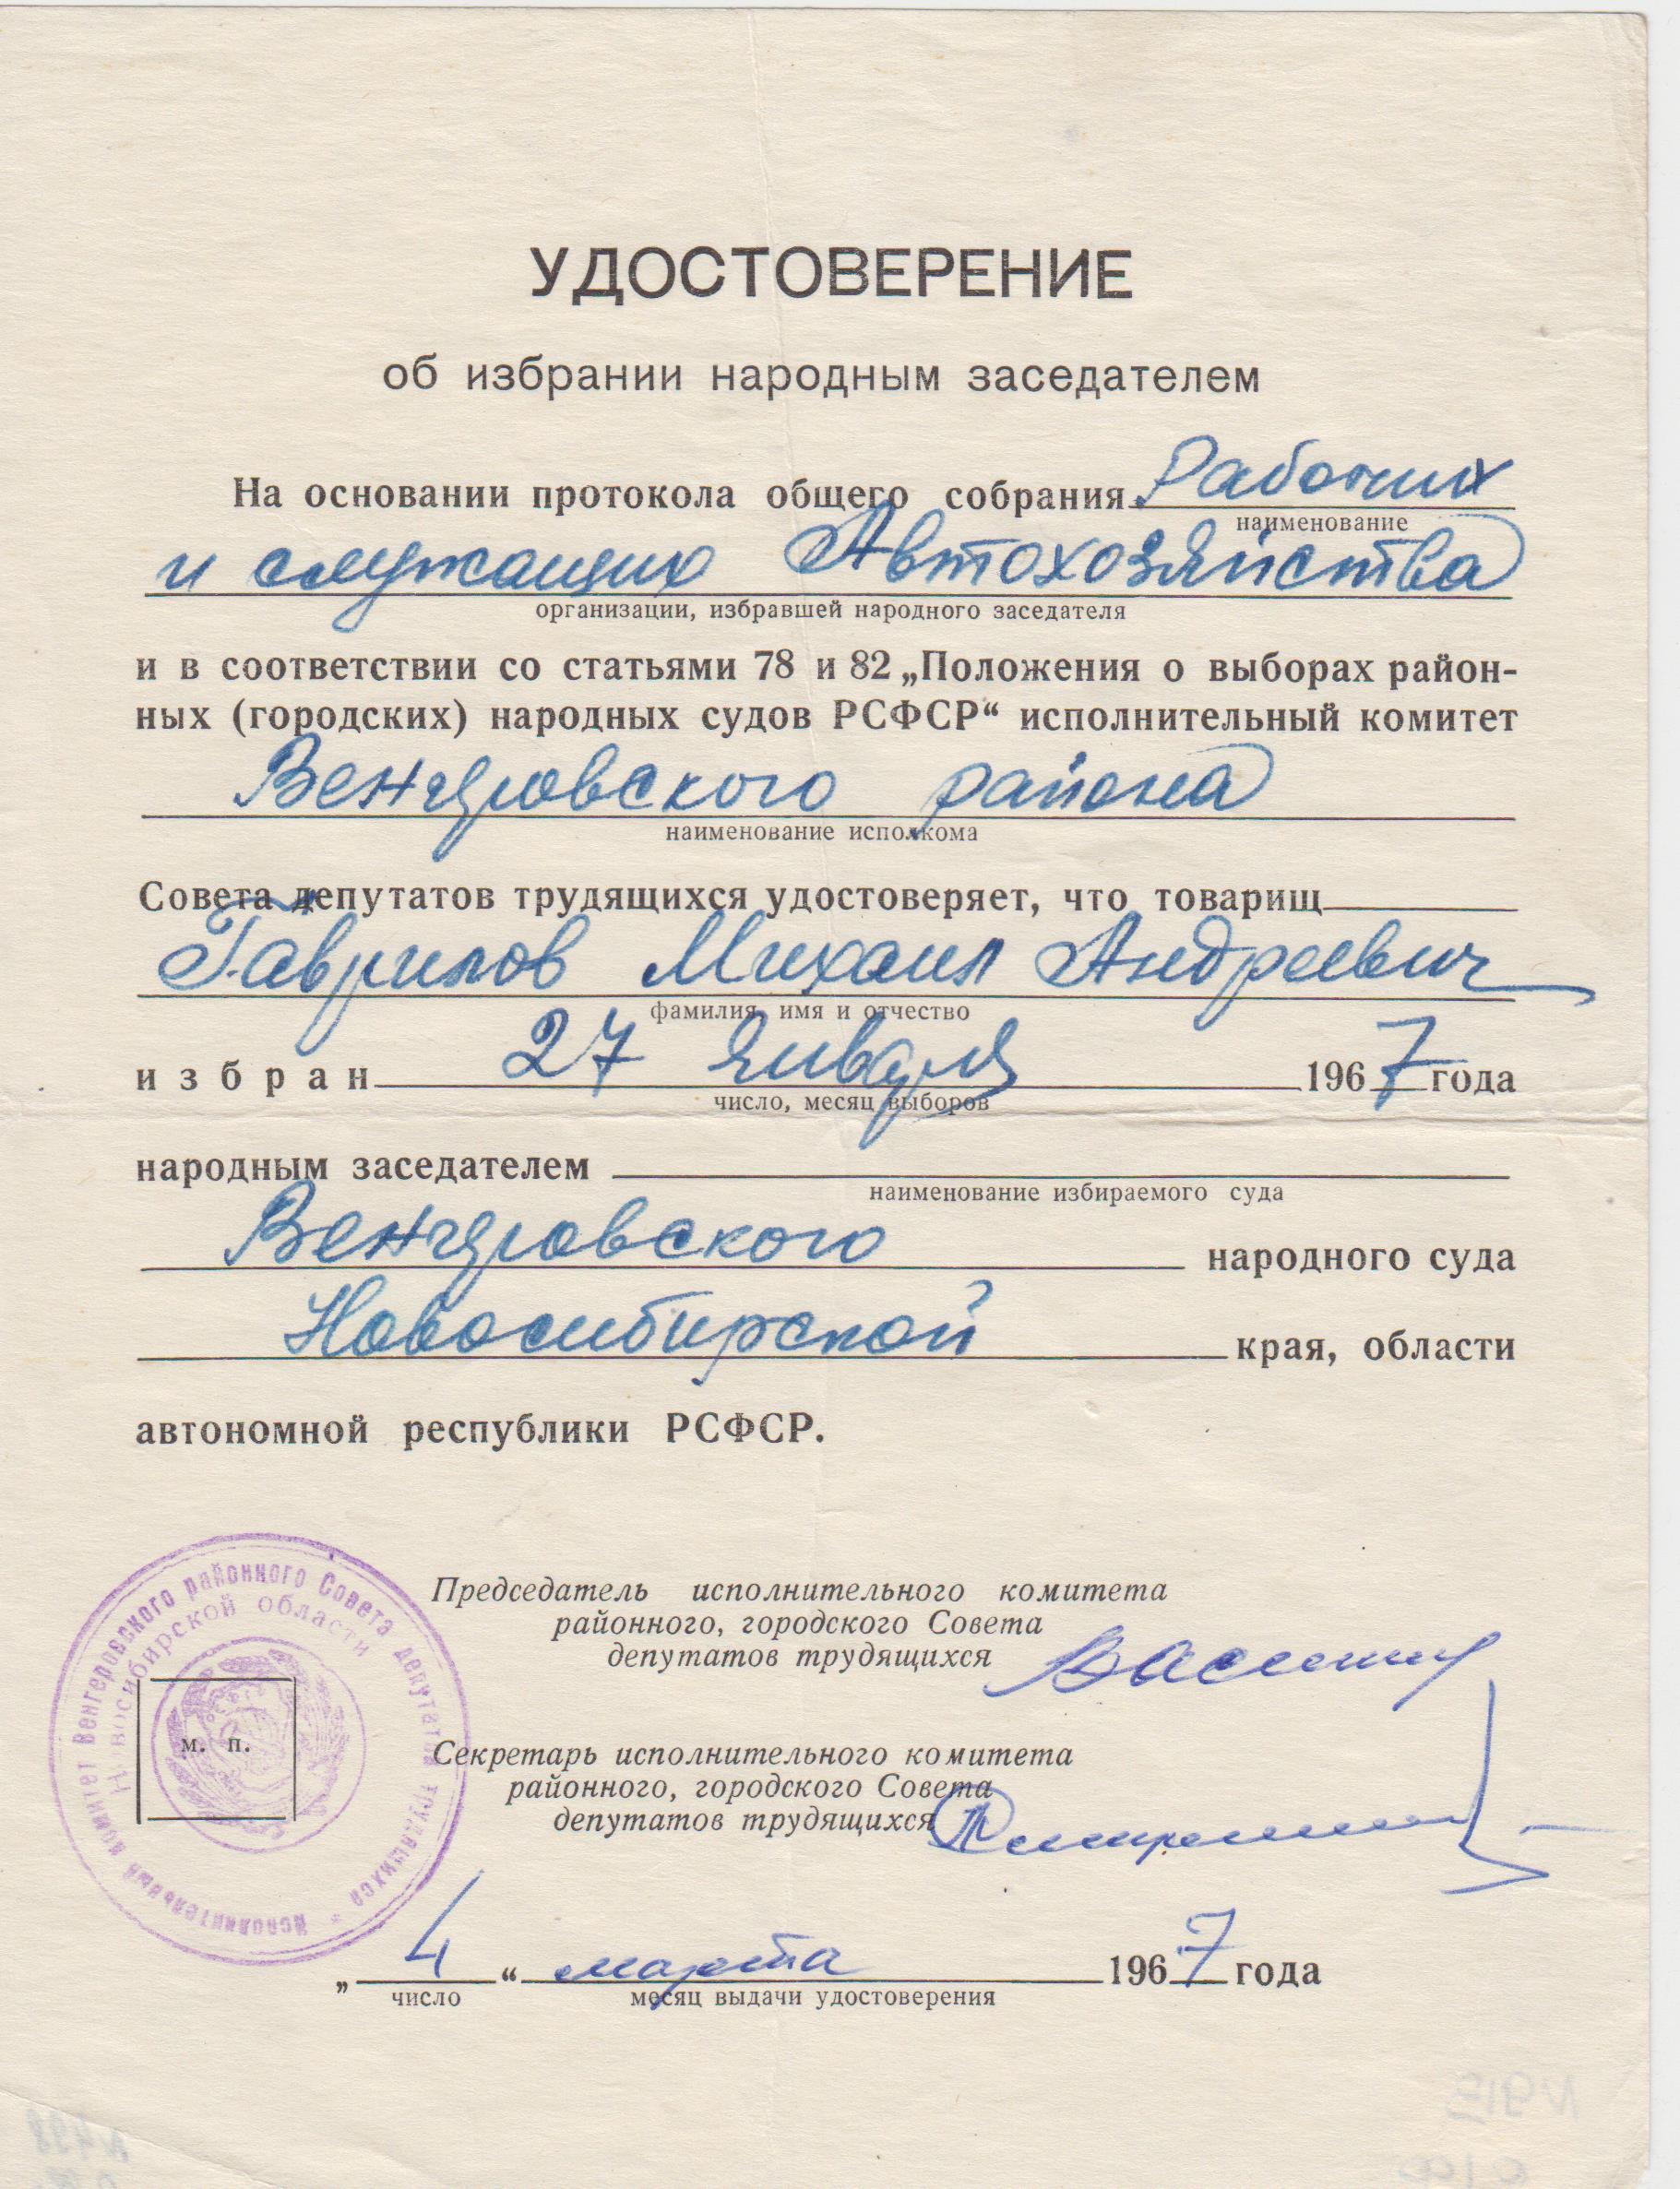 УДОСТОВЕРЕНИЕ
об избрании народным заседателем
На основании протокола общего собрания Рабочих
наименование
и служащих Автохозяйства
организации, избравшей народного заседателя
и в соответствии со статьями 78 и 82 „Положения о выборах район-
ных (городских) народных судов РСФСР“ исполнительный комитет
Венгеровского района
наименование исполкома
Совета депутатов трудящихся удостоверяет, что товарищ
Гаврилов Михаил Андреевич
фамилия, имя и отчество
избран 27 Января 1967 года
число, месяц выборов
народным заседателем
наименование избираемого суда
Венгеровского народного суда
Новосибирской края, области
автономной республики РСФСР.
Председатель исполнительного комитета
районного, городского Совета
депутатов трудящихся
Секретарь исполнительного комитета
районного, городского Совета
депутатов трудящихся
м. п.
Исполнительный комитет Венгеровского районного Совета депутатов трудящихся *
Новосибирской области
„4“ марта 1967 года
число месяц выдачи удостоверения